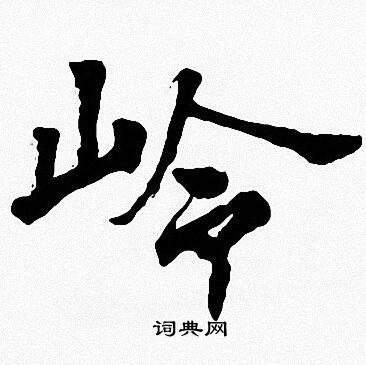 岭
词典网